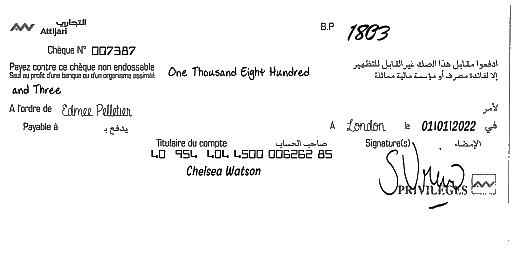 التجاري
Attijari
B.P 1803
Chèque N° 007387
Payez contre ce chèque non endossable
Sauf au profit d'une banque ou d'un organisme assimilé
One Thousand Eight Hundred
ادفعوا مقابل هذا الصك غير القابل للتظهير
إلا لفائدة مصرف أو مؤسسة مالية مماثلة
and Three
A l'ordre de Edmee Pelletier لأمر
Payable à يدفع بـ
A London le 01/01/2022 في
Titulaire du compte صاحب الحساب
Signature(s) الإمضاء
40 954 404 4500 006262 85
Chelsea Watson
PRIVILEGES